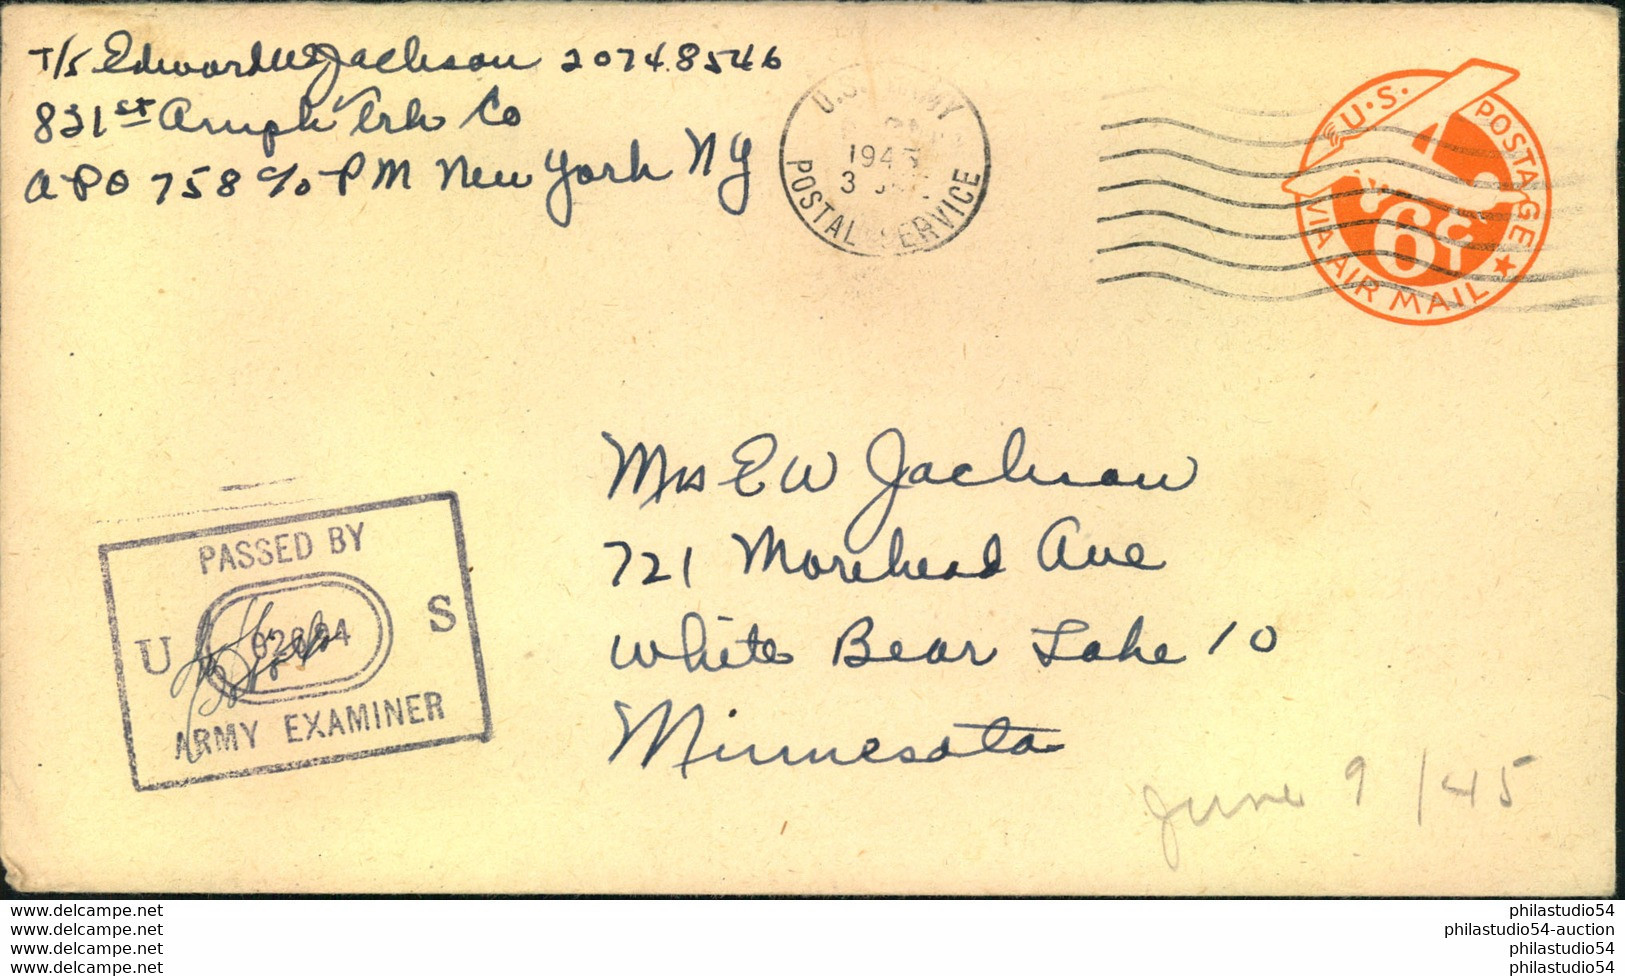 T/5 Edward W Jackson 20748546
831st Amph Trk Co
APO 758 c/o PM New York NY
U.S. ARMY
194
3
POSTAL SERVICE
U.S. POSTAGE
6¢
VIA AIR MAIL
Mrs E W Jackson
721 Morehead Ave
White Bear Lake 10
Minnesota
PASSED BY
U S
ARMY EXAMINER
June 9 /45
www.delcampe.net
www.delcampe.net
www.delcampe.net
www.delcampe.net
philastudio54
philastudio54-auction
philastudio54
philastudio54